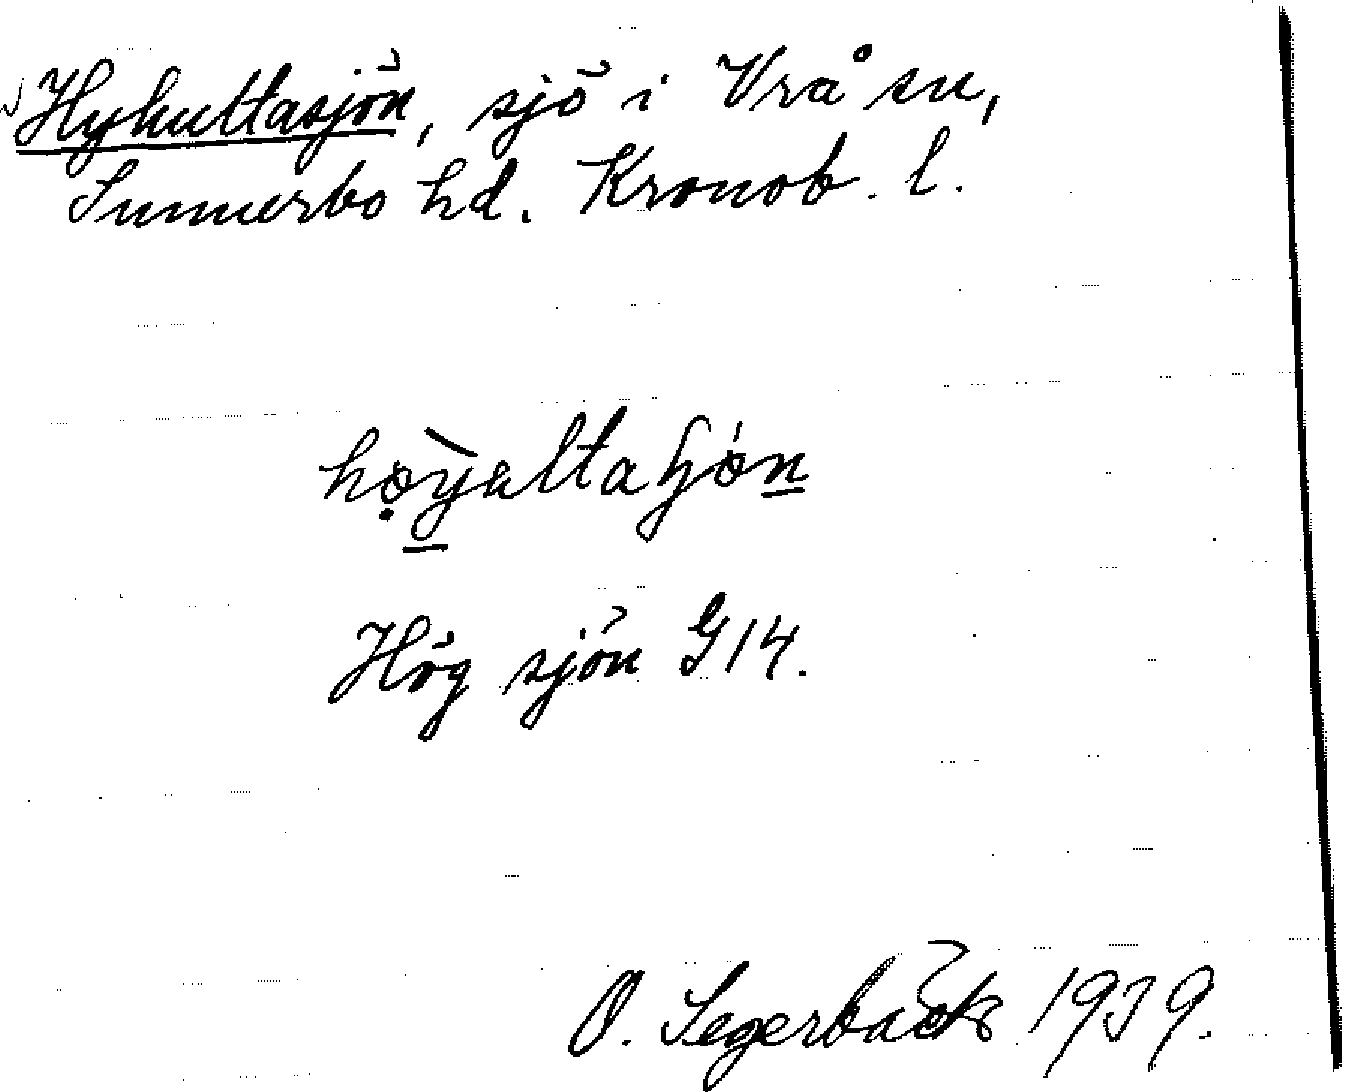 Hyhultasjön, sjö i Vrå sn,
Sunnerbo hd. Kronob. l.
Hög sjön G14.
O. Segerbäck 1939.